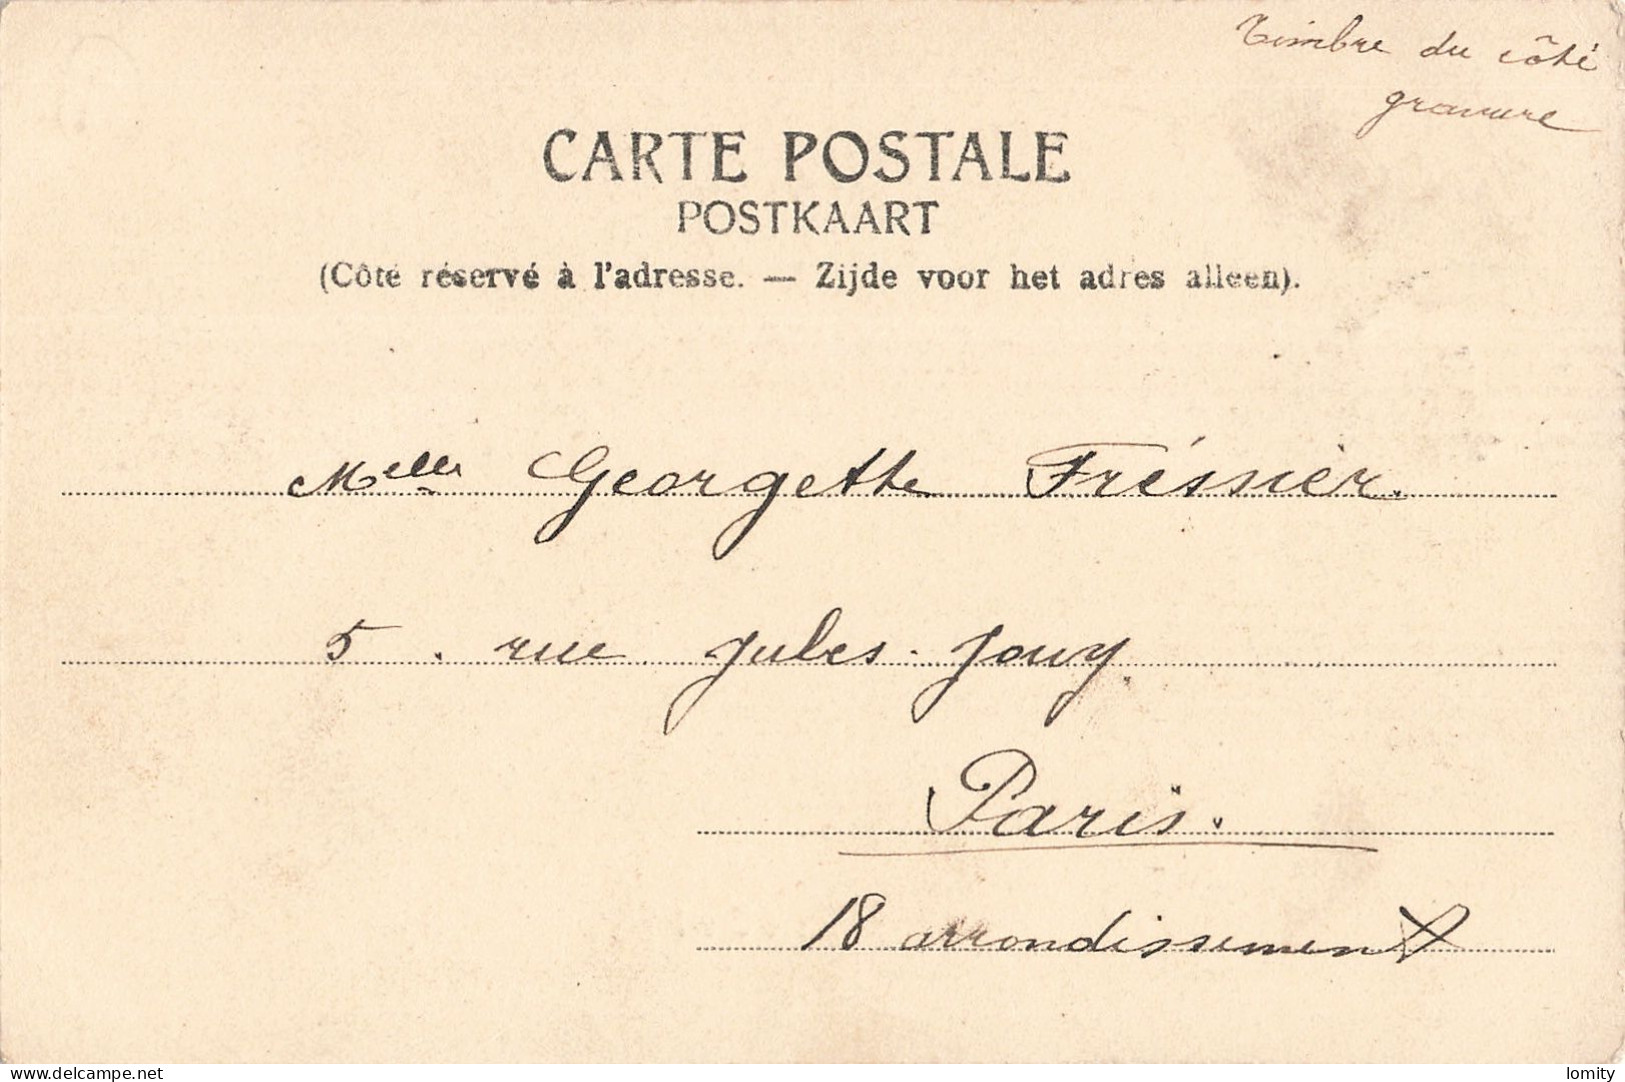 Timbre du côté
gravure
CARTE POSTALE
POSTKAART
(Côté réservé à l'adresse. — Zijde voor het adres alleen).
Melle Georgette Fréssier.
5. rue Jules-Jouy.
Paris.
18 arrondissement
delcampe.net
lomity